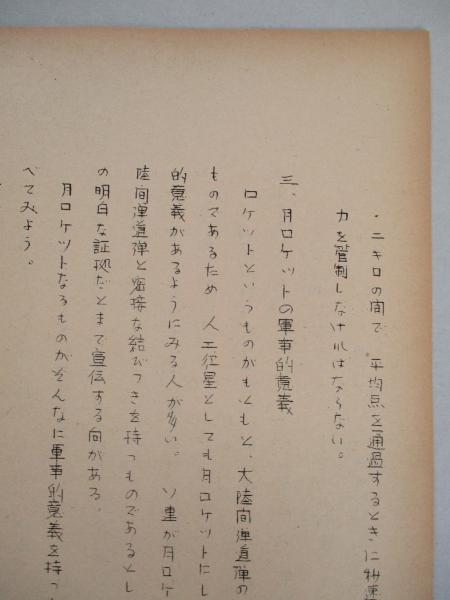 ・二キロの間で、平均点を通過するときに秒速
力を管制しなければならない。
三、月ロケットの軍事的意義
ロケットというものがもともと、大陸間弾道弾の
ものであるため 人工衛星としても月ロケットにし
的意義があるようにみる人が多い。 ソ連が月ロケ
陸間弾道弾と密接な結びつきを持つものであるとし
の明白な証拠だとまで宣伝する向がある。
月ロケットなるものがそんなに軍事的意義を持つ
べてみよう。